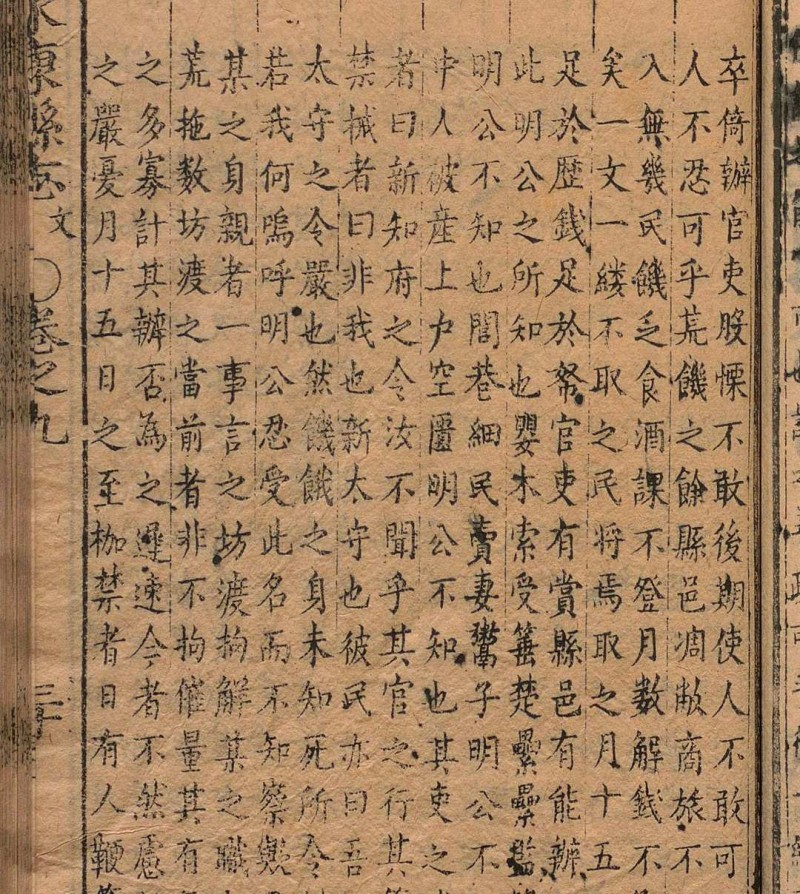 卒倚辦官吏股慄不敢後期使人不敢可
人不忍可乎荒饑之餘縣邑凋敝商旅不
入無幾民饑乏食酒課不登月數解錢不
矣一文一縷不取之民將焉取之月十五
足於歷錢足於帑官吏有賞縣邑有能辦
此明公之所知也嬰木索受箠楚纍纍
明公不知也閭巷細民賣妻鬻子明公不
中人破產上户空匱明公不知也其吏之
者曰新知府之令汝不聞乎其官之行其
禁械者曰非我也新太守也彼民亦曰吾
太守之令嚴也然饑餓之身未知死所令
若我何嗚呼明公忍受此名而不知察
某之身親者一事言之坊渡拘解某之職
荒拖數坊渡之當前者非不拘催量其有
之多寡計其辦否為之遲速今者不然慮
之嚴憂月十五日之至枷禁者日有人鞭
永康縣志 文 卷之九